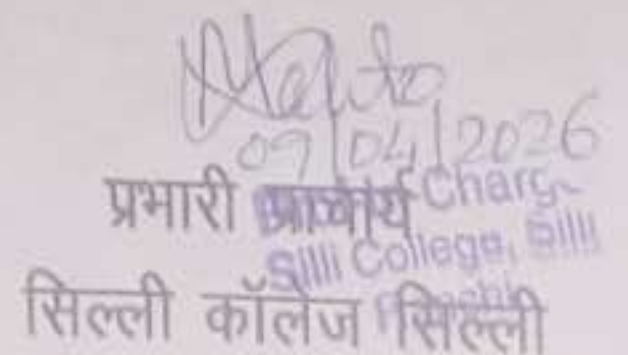 09/04/2026
प्रभारी प्राचार्य
Charge
Silli College, Silli
सिल्ली कॉलेज सिल्ली